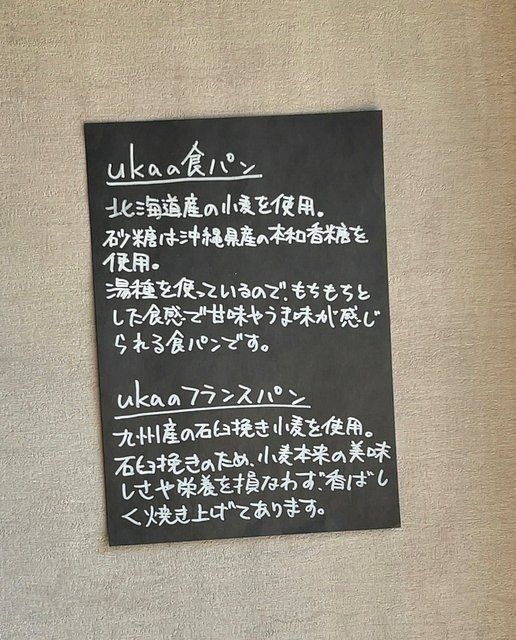 ukaの食パン
北海道産の小麦を使用。
砂糖は沖縄県産の本和香糖を
使用。
湯種を使っているので、もちもちと
した食感で甘味やうま味が感じ
られる食パンです。
ukaのフランスパン
九州産の石臼挽き小麦を使用。
石臼挽きのため、小麦本来の美味
しさや栄養を損なわず香ばし
く焼き上げてあります。